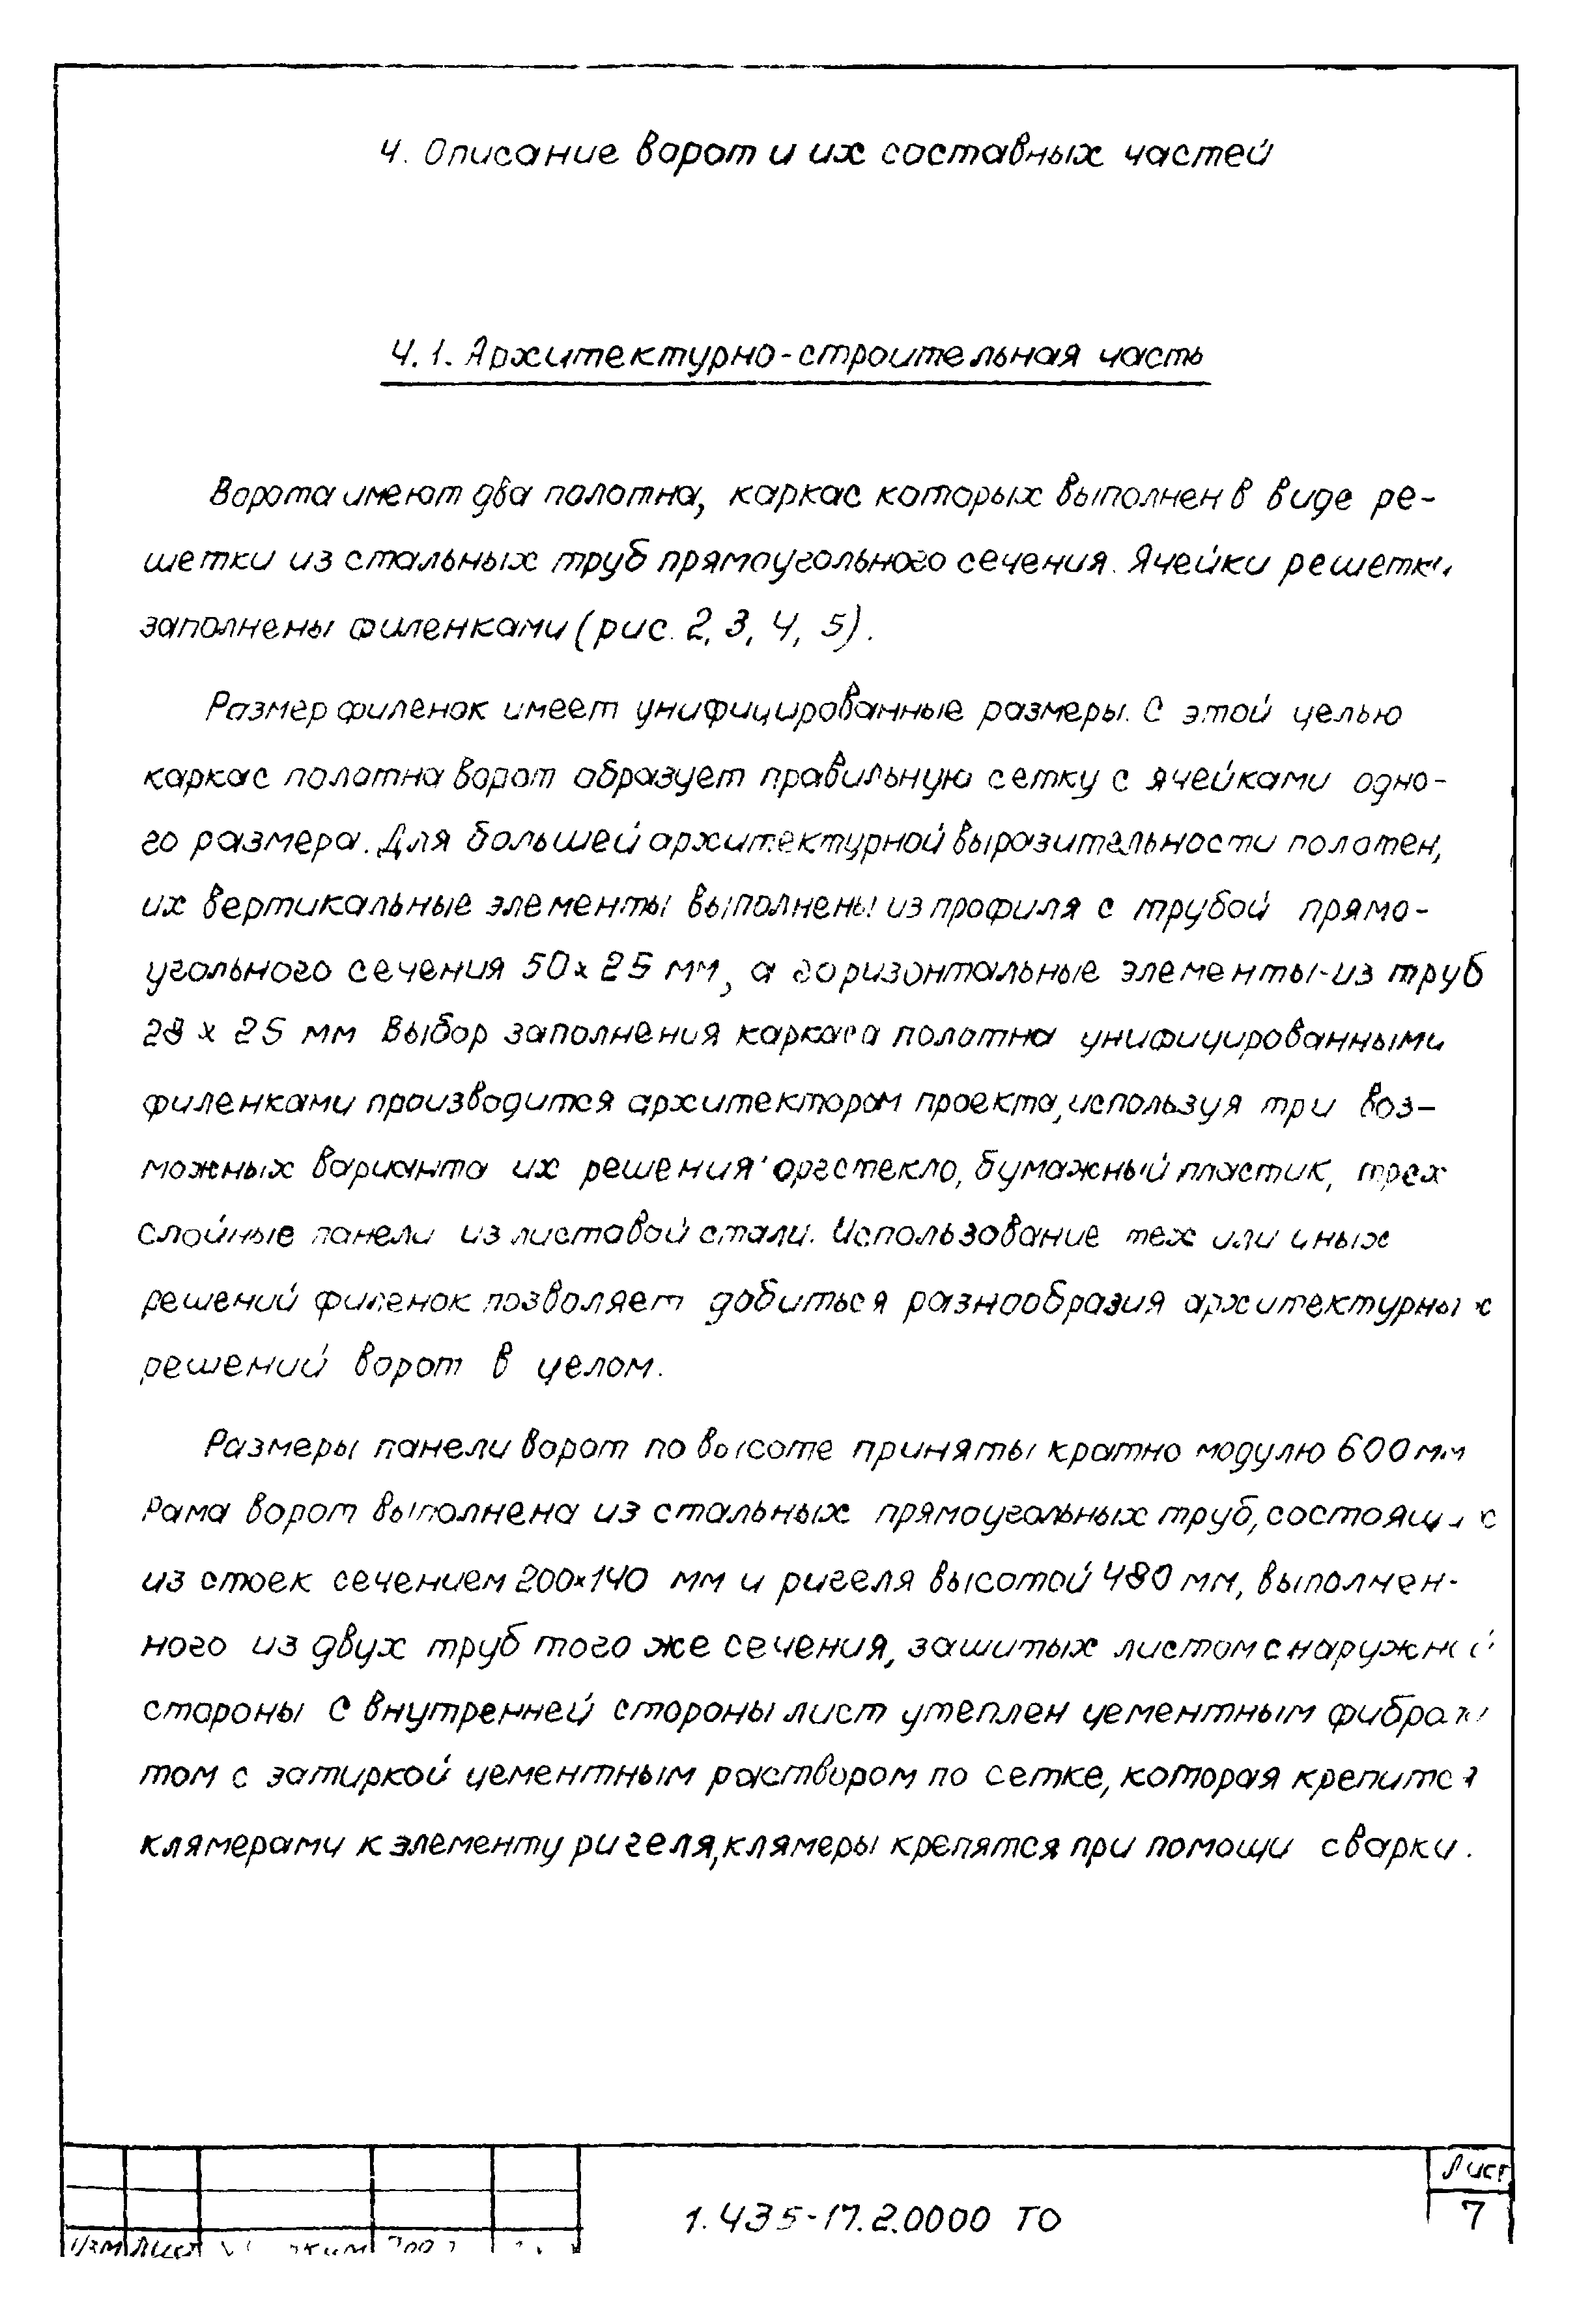 4. Описание ворот и их составных частей
4.1. Архитектурно-строительная часть
Ворота имеют два полотна, каркас которых выполнен в виде ре-
шетки из стальных труб прямоугольного сечения. Ячейки решетки
заполнены филенками (рис. 2, 3, 4, 5).
Размер филенок имеет унифицированные размеры. С этой целью
каркас полотна ворот образует правильную сетку с ячейками одно-
го размера. Для большей архитектурной выразительности полотен,
их вертикальные элементы выполнены из профиля с трубой прямо-
угольного сечения 50х25 мм, а горизонтальные элементы-из труб
28 х 25 мм Выбор заполнения каркаса полотна унифицированными
филенками производится архитектором проекта, используя три воз-
можных варианта их решения: оргстекло, бумажный пластик, трех
слойные панели из листовой стали. Использование тех или иных
решений филенок позволяет добиться разнообразия архитектурных
решений ворот в целом.
Размеры панели ворот по высоте приняты кратно модулю 600 мм
Рама ворот выполнена из стальных прямоугольных труб, состоящих
из стоек сечением 200×140 мм и ригеля высотой 480 мм, выполнен-
ного из двух труб того же сечения, зашитых листом с наружной
стороны С внутренней стороны лист утеплен цементным фиброли
том с затиркой цементным раствором по сетке, которая крепится
клямерами к элементу ригеля, клямеры крепятся при помощи сварки.
1.435-17.2.0000 ТО
Лист
7
Изм Лист